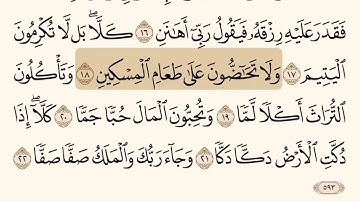 فَقَدَرَ عَلَيْهِ رِزْقَهُۥ فَيَقُولُ رَبِّىٓ أَهَٰنَنِ ١٦ كَلَّا ۖ بَل لَّا تُكْرِمُونَ
ٱلْيَتِيمَ ١٧ وَلَا تَحَٰٓضُّونَ عَلَىٰ طَعَامِ ٱلْمِسْكِينِ ١٨ وَتَأْكُلُونَ
ٱلتُّرَاثَ أَكْلًا لَّمًّا ١٩ وَتُحِبُّونَ ٱلْمَالَ حُبًّا جَمًّا ٢٠ كَلَّآ ۖ إِذَا
دُكَّتِ ٱلْأَرْضُ دَكًّا دَكًّا ٢١ وَجَآءَ رَبُّكَ وَٱلْمَلَكُ صَفًّا صَفًّا ٢٢
٥٩٣